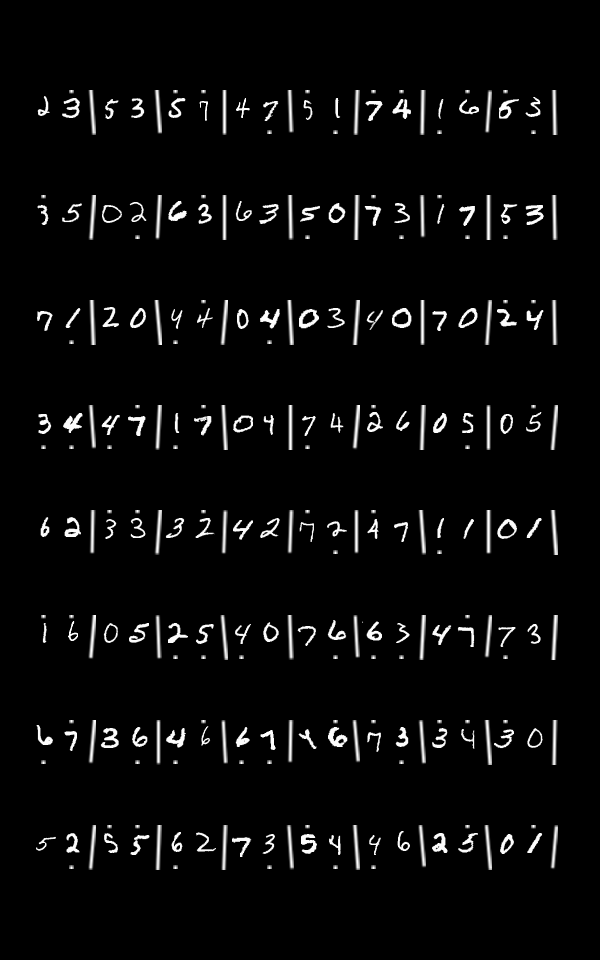 2 3 | 5 3 | 5 7 | 4 7 | 5 1 | 7 4 | 1 6 | 5 3 |
3 5 | 0 2 | 6 3 | 6 3 | 5 0 | 7 3 | 1 7 | 5 3 |
7 1 | 2 0 | 4 4 | 0 4 | 0 3 | 4 0 | 7 0 | 2 4 |
3 4 | 4 7 | 1 7 | 0 4 | 7 4 | 2 6 | 0 5 | 0 5 |
6 2 | 3 3 | 3 2 | 4 2 | 7 2 | 4 7 | 1 1 | 0 1 |
1 6 | 0 5 | 2 5 | 4 0 | 7 6 | 6 3 | 4 7 | 7 3 |
6 7 | 3 6 | 4 6 | 6 7 | 4 6 | 7 3 | 3 4 | 3 0 |
5 2 | 5 5 | 6 2 | 7 3 | 5 4 | 4 6 | 2 5 | 0 1 |